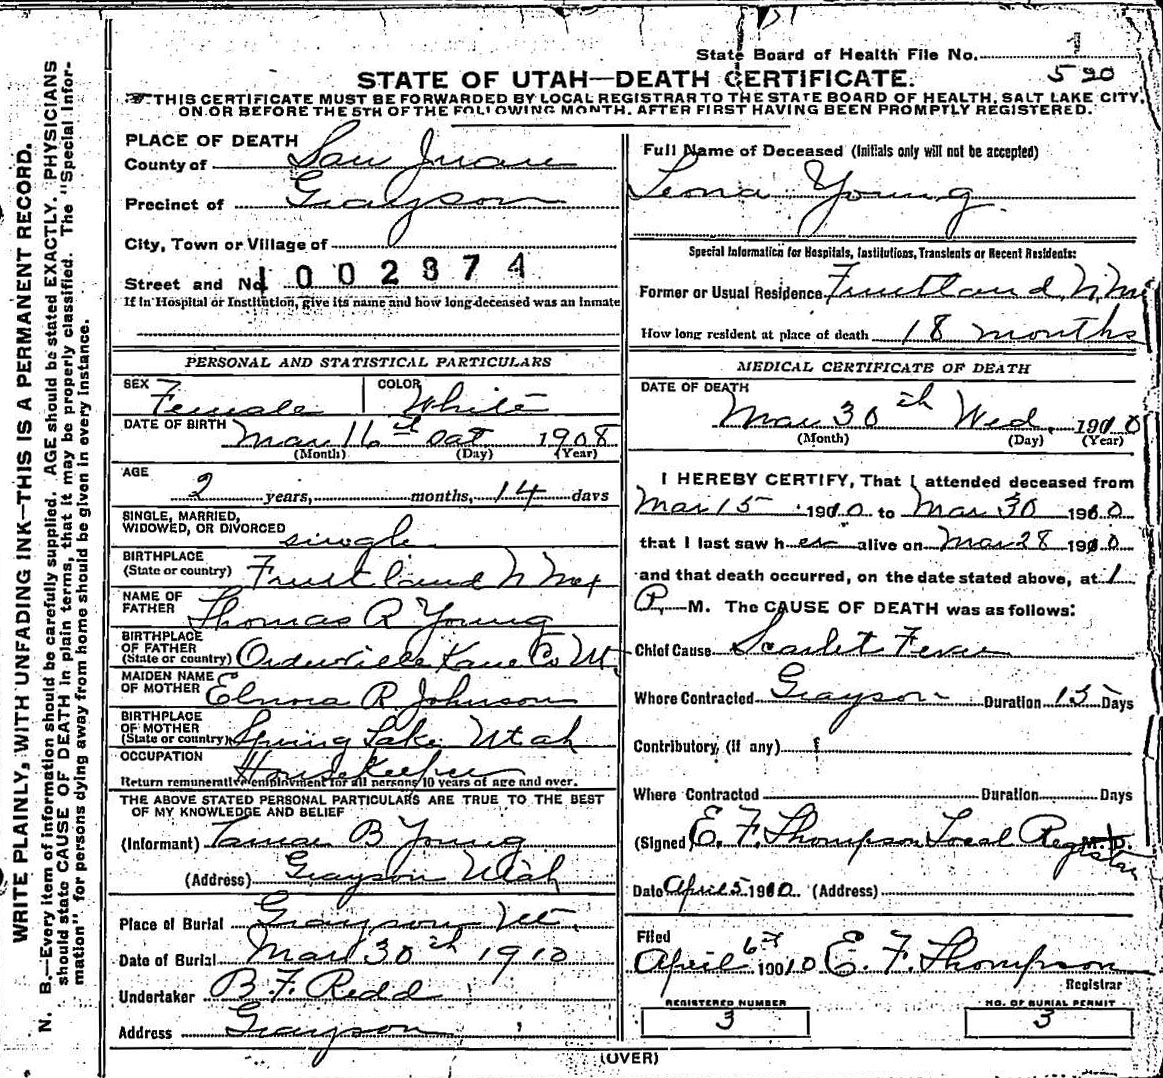 State Board of Health File No. 1
520
STATE OF UTAH—DEATH CERTIFICATE.
THIS CERTIFICATE MUST BE FORWARDED BY LOCAL REGISTRAR TO THE STATE BOARD OF HEALTH, SALT LAKE CITY,
ON OR BEFORE THE 5TH OF THE FOLLOWING MONTH, AFTER FIRST HAVING BEEN PROMPTLY REGISTERED.
WRITE PLAINLY, WITH UNFADING INK—THIS IS A PERMANENT RECORD.
N. B.—Every item of information should be carefully supplied. AGE should be stated EXACTLY. PHYSICIANS
should state CAUSE OF DEATH in plain terms, that it may be properly classified. The "Special Infor-
mation" for persons dying away from home should be given in every instance.
PLACE OF DEATH
County of San Juan
Precinct of Grayson
City, Town or Village of
Street and No. 1002874
If in Hospital or Institution, give its name and how long deceased was an inmate
PERSONAL AND STATISTICAL PARTICULARS
SEX Female COLOR White
DATE OF BIRTH Mar 16th Sat 1908
(Month) (Day) (Year)
AGE
2 years, months, 14 days
SINGLE, MARRIED,
WIDOWED, OR DIVORCED single
BIRTHPLACE
(State or country) Fruitland N Mex
NAME OF
FATHER Thomas R Young
BIRTHPLACE
OF FATHER
(State or country) Orderville Kane Co Ut
MAIDEN NAME
OF MOTHER Elnora R Johnson
BIRTHPLACE
OF MOTHER
(State or country) Spring Lake Utah
OCCUPATION Housekeeper
Return remunerative employment for all persons 10 years of age and over.
THE ABOVE STATED PERSONAL PARTICULARS ARE TRUE TO THE BEST
OF MY KNOWLEDGE AND BELIEF
(Informant) Tamar B Young
(Address) Grayson Utah
Place of Burial Grayson Ut.
Date of Burial Mar 30th 1910
Undertaker B. F. Redd
Address Grayson
Full Name of Deceased (Initials only will not be accepted)
Leona Young
Special Information for Hospitals, Institutions, Transients or Recent Residents:
Former or Usual Residence Fruitland N. Mex
How long resident at place of death 18 months
MEDICAL CERTIFICATE OF DEATH
DATE OF DEATH
Mar 30th Wed. 1910
(Month) (Day) (Year)
I HEREBY CERTIFY, That I attended deceased from
Mar 15 1910 to Mar 30 1910
that I last saw her alive on Mar 28 1910
and that death occurred, on the date stated above, at 1
P. M. The CAUSE OF DEATH was as follows:
Chief Cause Scarlet Fever
Where Contracted Grayson Duration 15 Days
Contributory, (if any)
Where Contracted Duration Days
(Signed) E. F. Thompson Local Registrar M. D.
Date April 5 1910 (Address)
Filed
April 6th 1910 E. F. Thompson
Registrar
REGISTERED NUMBER NO. OF BURIAL PERMIT
3 3
(OVER)